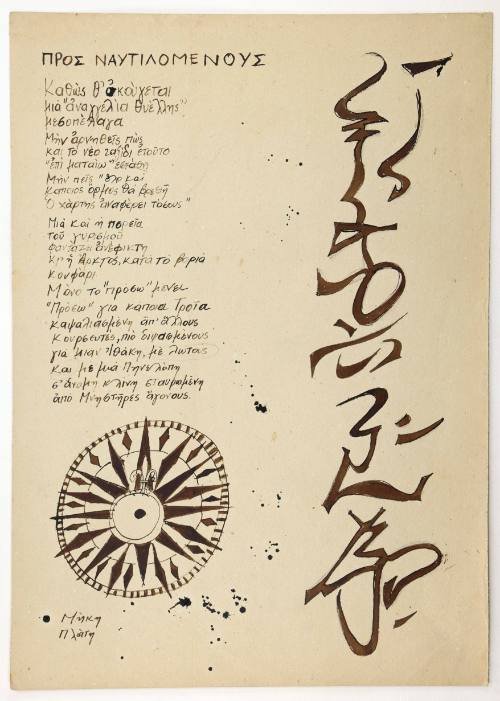 ΠΡΟΣ ΝΑΥΤΙΛΟΜΕΝΟΥΣ
Καθὼς θ' ἀκούγεται
μιὰ "ἀναγγελία θυέλλης"
μεσοπέλαγα
Μὴν ἀρνηθεῖς πὼς
και τὸ νέο ταξίδι ἐτοῦτο
"ἐπὶ ματαίω"
Μὴν πεῖς "ὅλο και
κάποιος ὅρμος θὰ βρεθῆ
Ὁ χάρτης ἀναφέρει τόσους"
Μιὰ και ἡ πορεία
τοῦ γυρισμοῦ
φαντάζει ἀνέφικτη
κι ἡ Ἄρκτος, κατὰ τὸ βοριὰ
κουφάρι
Μόνο τὸ "πρόσω" μένει
"Πρόσω" γιὰ κάποια Τροία
καψαλιασμένη ἀπ' ἄλλους
κουρσευτές, πιὸ διψασμένους
γιὰ μιαν Ἰθάκη, μὲ λωτους
και μὲ μιὰ Πηνελόπη
σ' ἄνομη κλίνη σταυρωμένη
ἀπὸ Μνηστῆρες ἄγονους.
Μήκη
Πλάτη